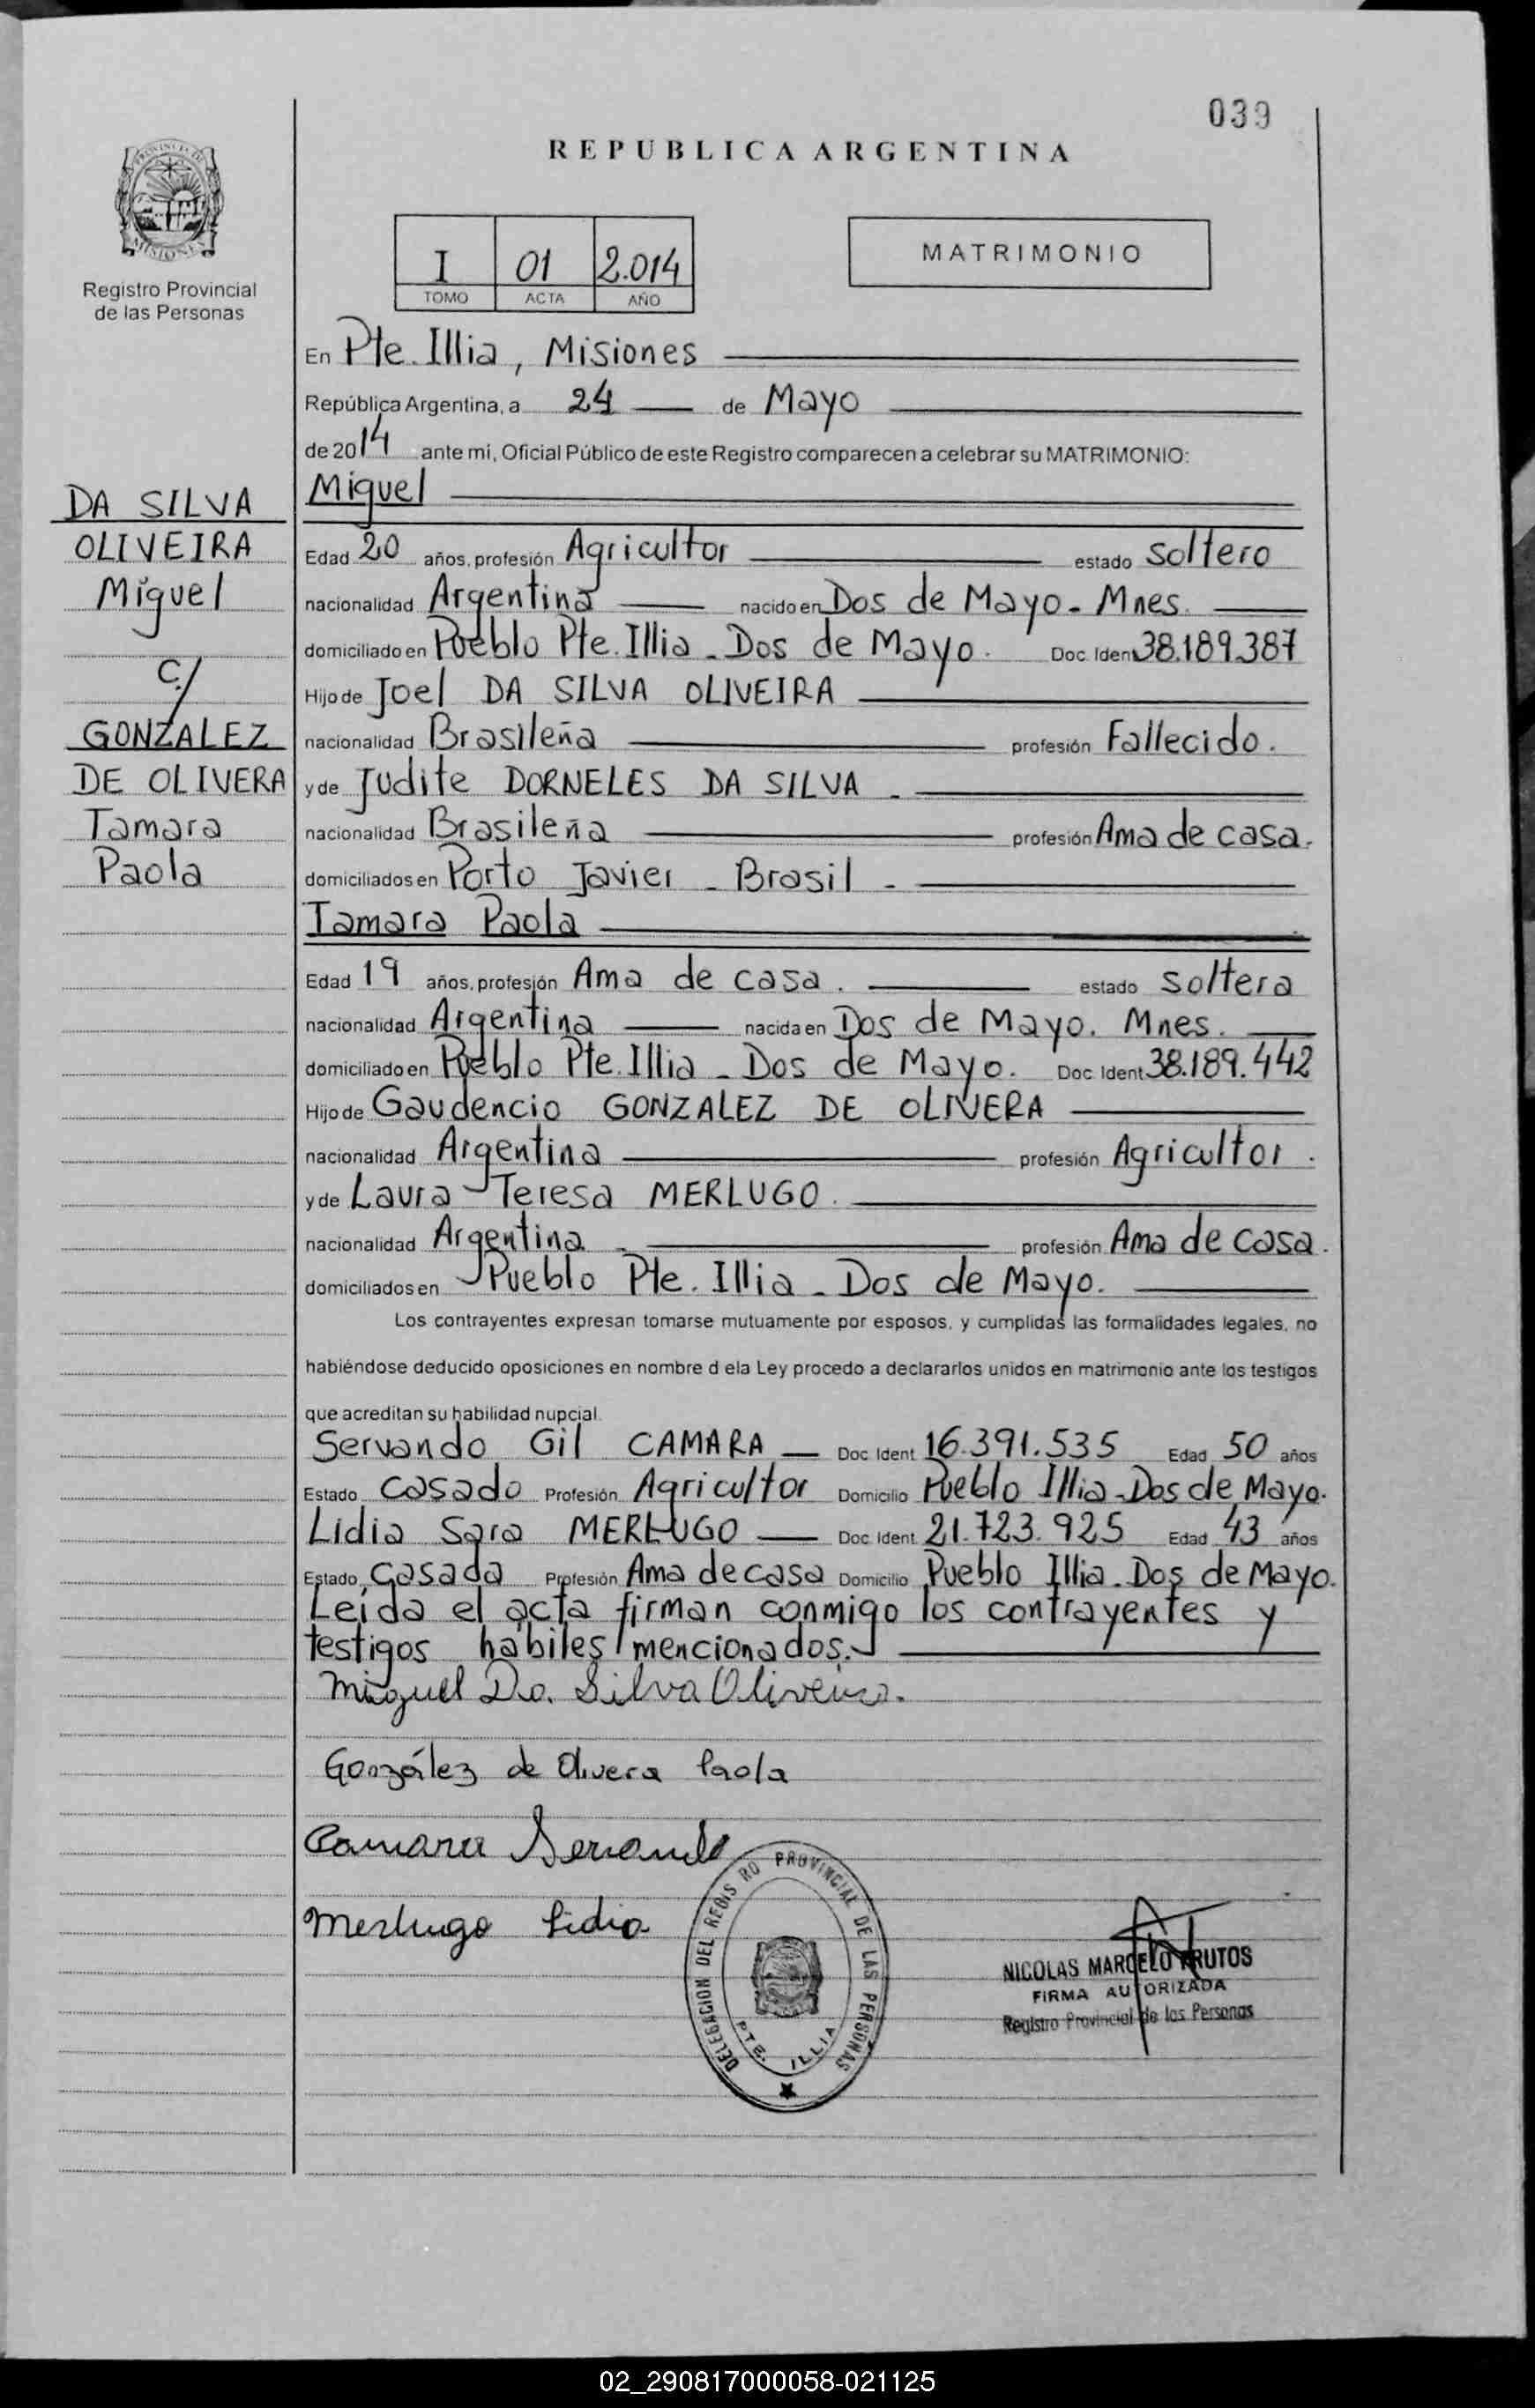 039
REPUBLICA ARGENTINA
PROVINCIA DE
MISIONES
Registro Provincial
de las Personas
I 01 2.014
TOMO ACTA AÑO
MATRIMONIO
En Pte. Illia, Misiones
República Argentina, a 24 de Mayo
de 2014 ante mi, Oficial Público de este Registro comparecen a celebrar su MATRIMONIO:
DA SILVA
OLIVEIRA
Miguel
c/
GONZALEZ
DE OLIVERA
Tamara
Paola
Miguel
Edad 20 años, profesión Agricultor estado soltero
nacionalidad Argentina nacido en Dos de Mayo - Mnes.
domiciliado en Pueblo Pte. Illia - Dos de Mayo. Doc. Ident 38.189.387
Hijo de Joel DA SILVA OLIVEIRA
nacionalidad Brasileña profesión Fallecido.
y de Judite DORNELES DA SILVA -
nacionalidad Brasileña profesión Ama de casa.
domiciliados en Porto Javier - Brasil -
Tamara Paola
Edad 19 años, profesión Ama de casa. estado soltera
nacionalidad Argentina nacida en Dos de Mayo. Mnes.
domiciliado en Pueblo Pte. Illia - Dos de Mayo. Doc Ident 38.189.442
Hijo de Gaudencio GONZALEZ DE OLIVERA
nacionalidad Argentina profesión Agricultor.
y de Laura Teresa MERLUGO.
nacionalidad Argentina - profesión Ama de casa.
domiciliados en Pueblo Pte. Illia - Dos de Mayo.
Los contrayentes expresan tomarse mutuamente por esposos, y cumplidas las formalidades legales, no
habiéndose deducido oposiciones en nombre d ela Ley procedo a declararlos unidos en matrimonio ante los testigos
que acreditan su habilidad nupcial.
Servando Gil CAMARA — Doc. Ident 16.391.535 Edad 50 años
Estado Casado Profesión Agricultor Domicilio Pueblo Illia - Dos de Mayo.
Lidia Sara MERLUGO — Doc. Ident 21.723.925 Edad 43 años
Estado Casada Profesión Ama de casa Domicilio Pueblo Illia - Dos de Mayo.
Leída el acta firman conmigo los contrayentes y
testigos hábiles mencionados.
Miguel Da Silva Oliveira.
González de Olivera Paola
Camara Servando
Merlugo Lidia
DELEGACION DEL REGIS RO PROVINCIAL DE LAS PERSONAS
PTE. ILLIA
NICOLAS MARCELO FRUTOS
FIRMA AUTORIZADA
Registro Provincial de las Personas
02_290817000058-021125